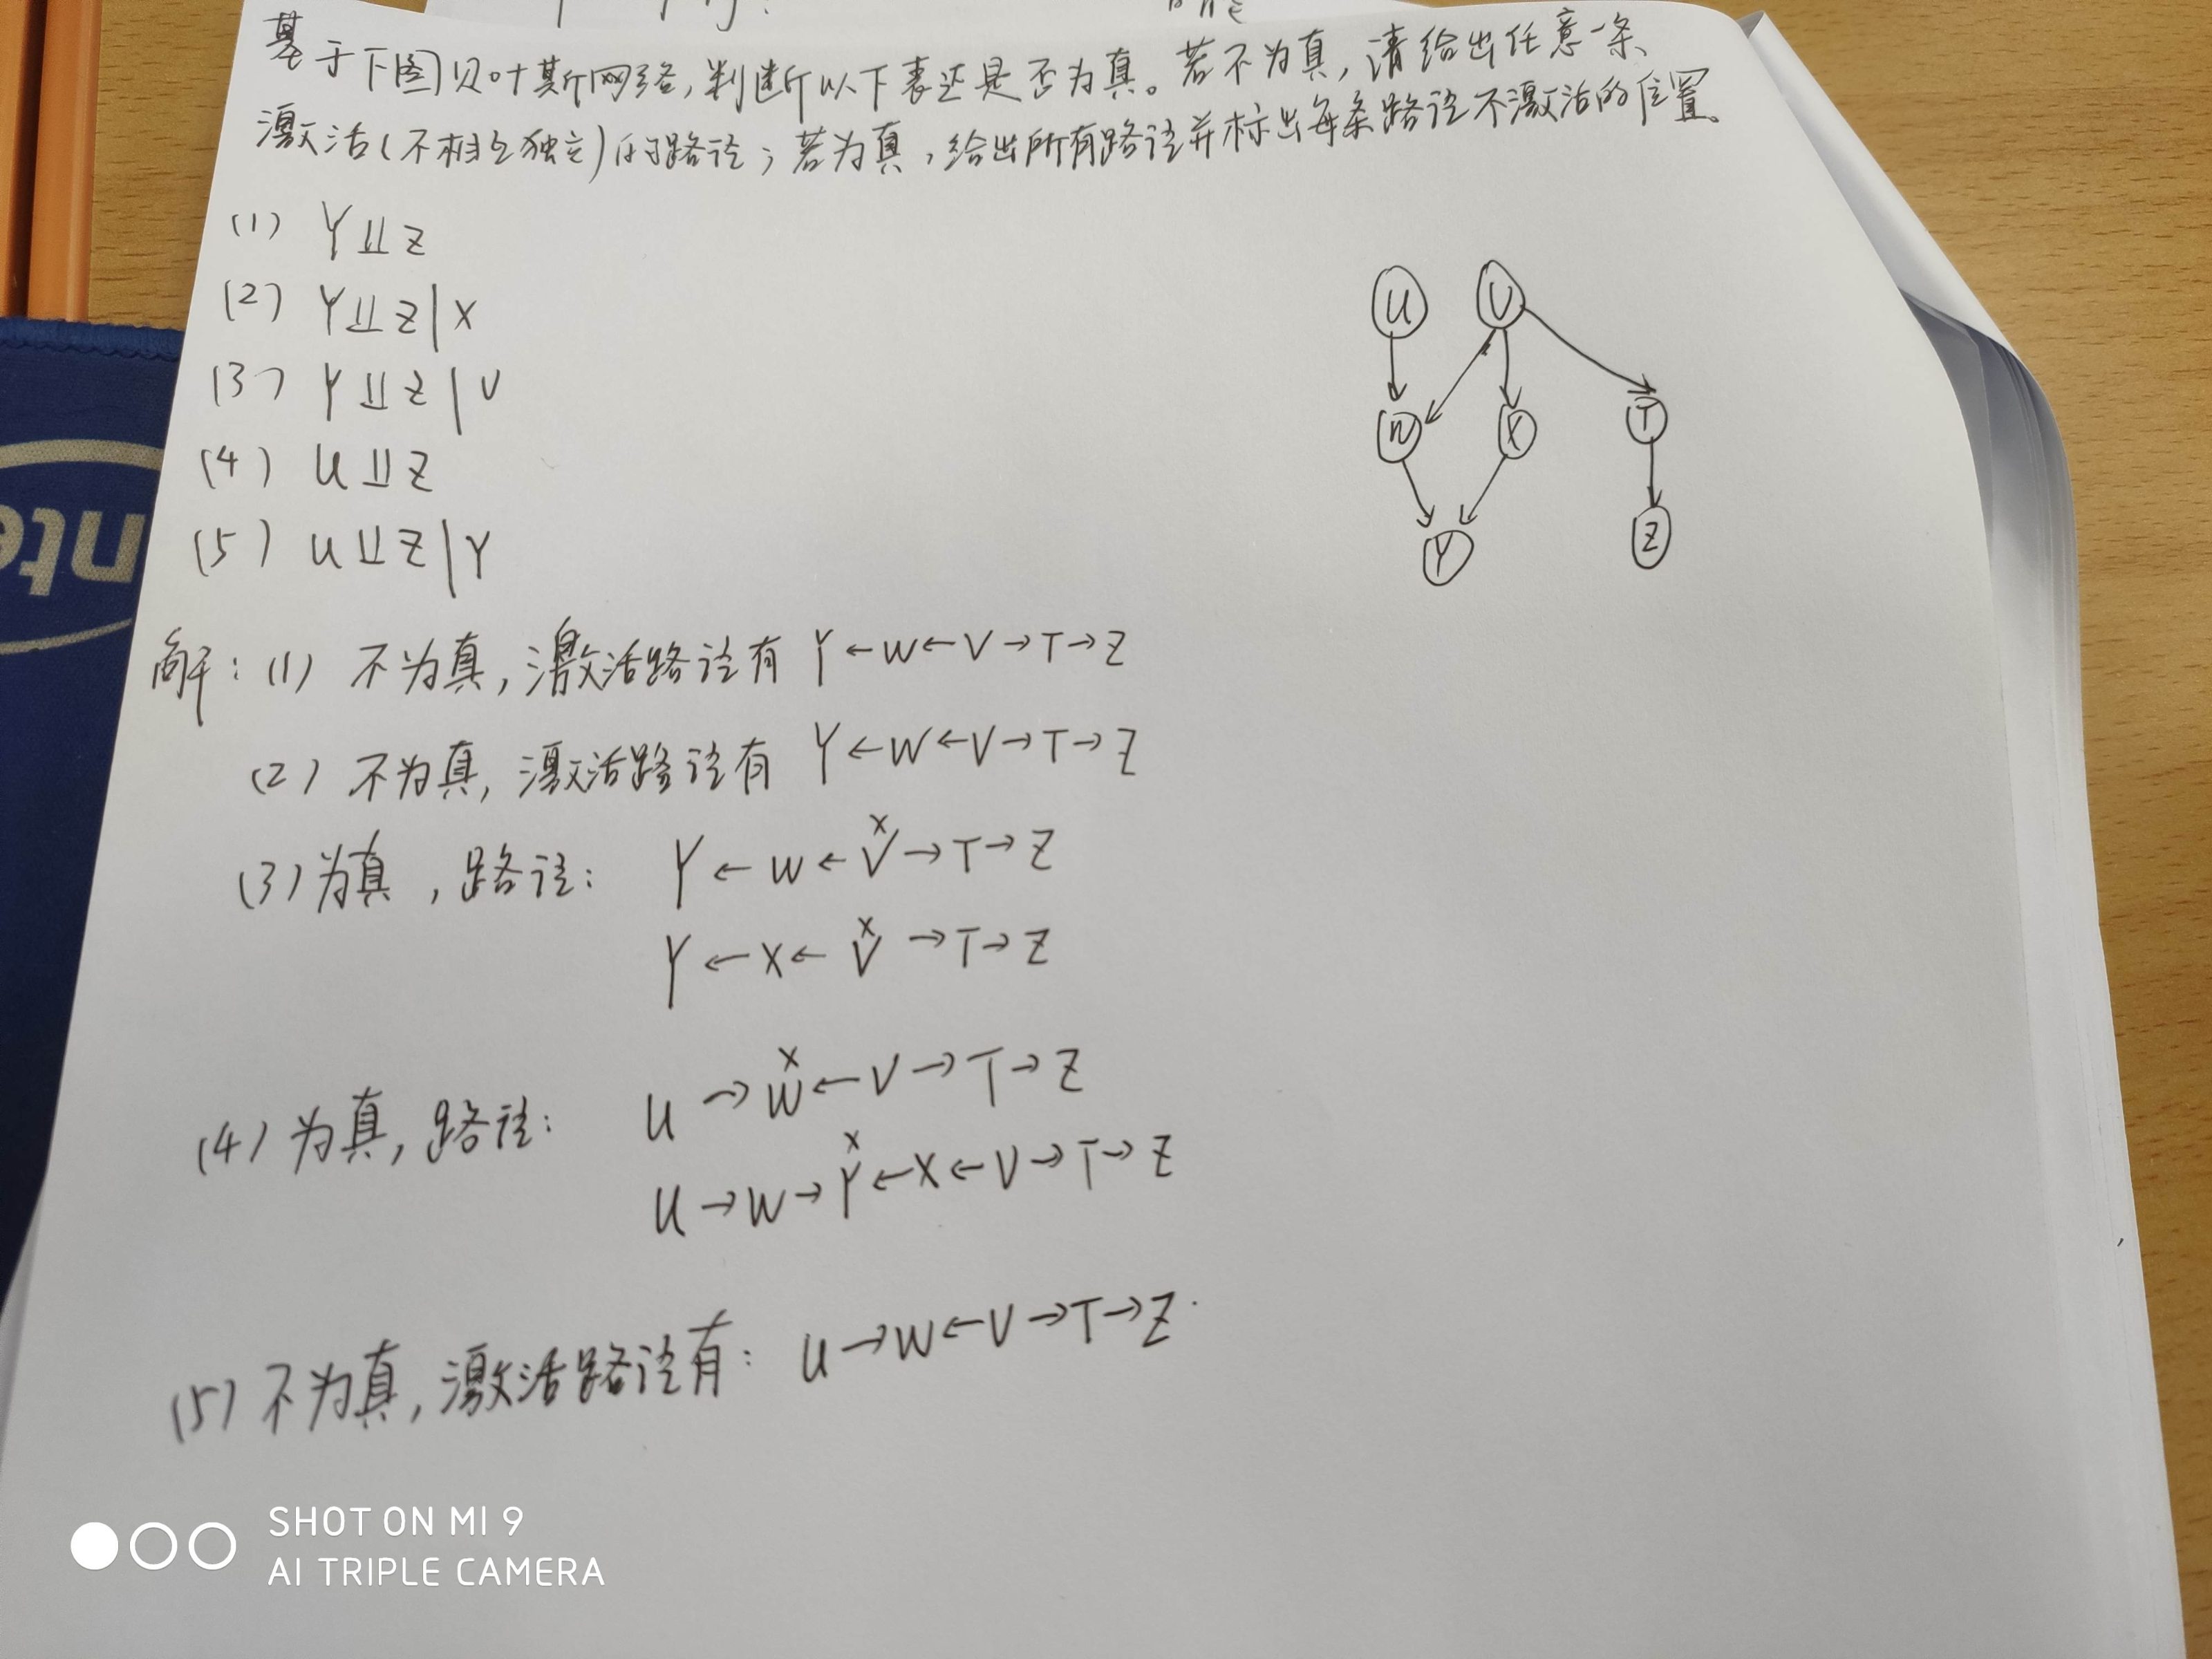 基于下图贝叶斯网络,判断以下表达是否为真。若不为真,请给出任意一条
激活(不相互独立)的路径;若为真,给出所有路径并标出每条路径不激活的位置。
(1) Y⫫Z
(2) Y⫫Z|X
(3) Y⫫Z|V
(4) U⫫Z
(5) U⫫Z|Y
U V
W X T
Y Z
解:(1) 不为真,激活路径有 Y←W←V→T→Z
(2) 不为真,激活路径有 Y←W←V→T→Z
x
(3) 为真,路径: Y←W←V→T→Z
x
Y←X←V→T→Z
x
(4) 为真,路径: U→W←V→T→Z
x
U→W→Y←X←V→T→Z
(5) 不为真,激活路径有: U→W←V→T→Z.
SHOT ON MI 9
AI TRIPLE CAMERA